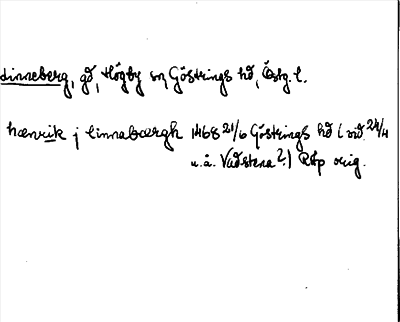 Linneberg, gd, Högby sn, Göstrings hd, Östg. l.
hænrik j linnabærgh 1468 21/6 Göstrings hd (vid. 24/4
u.å. Vadstena?) RAp orig.